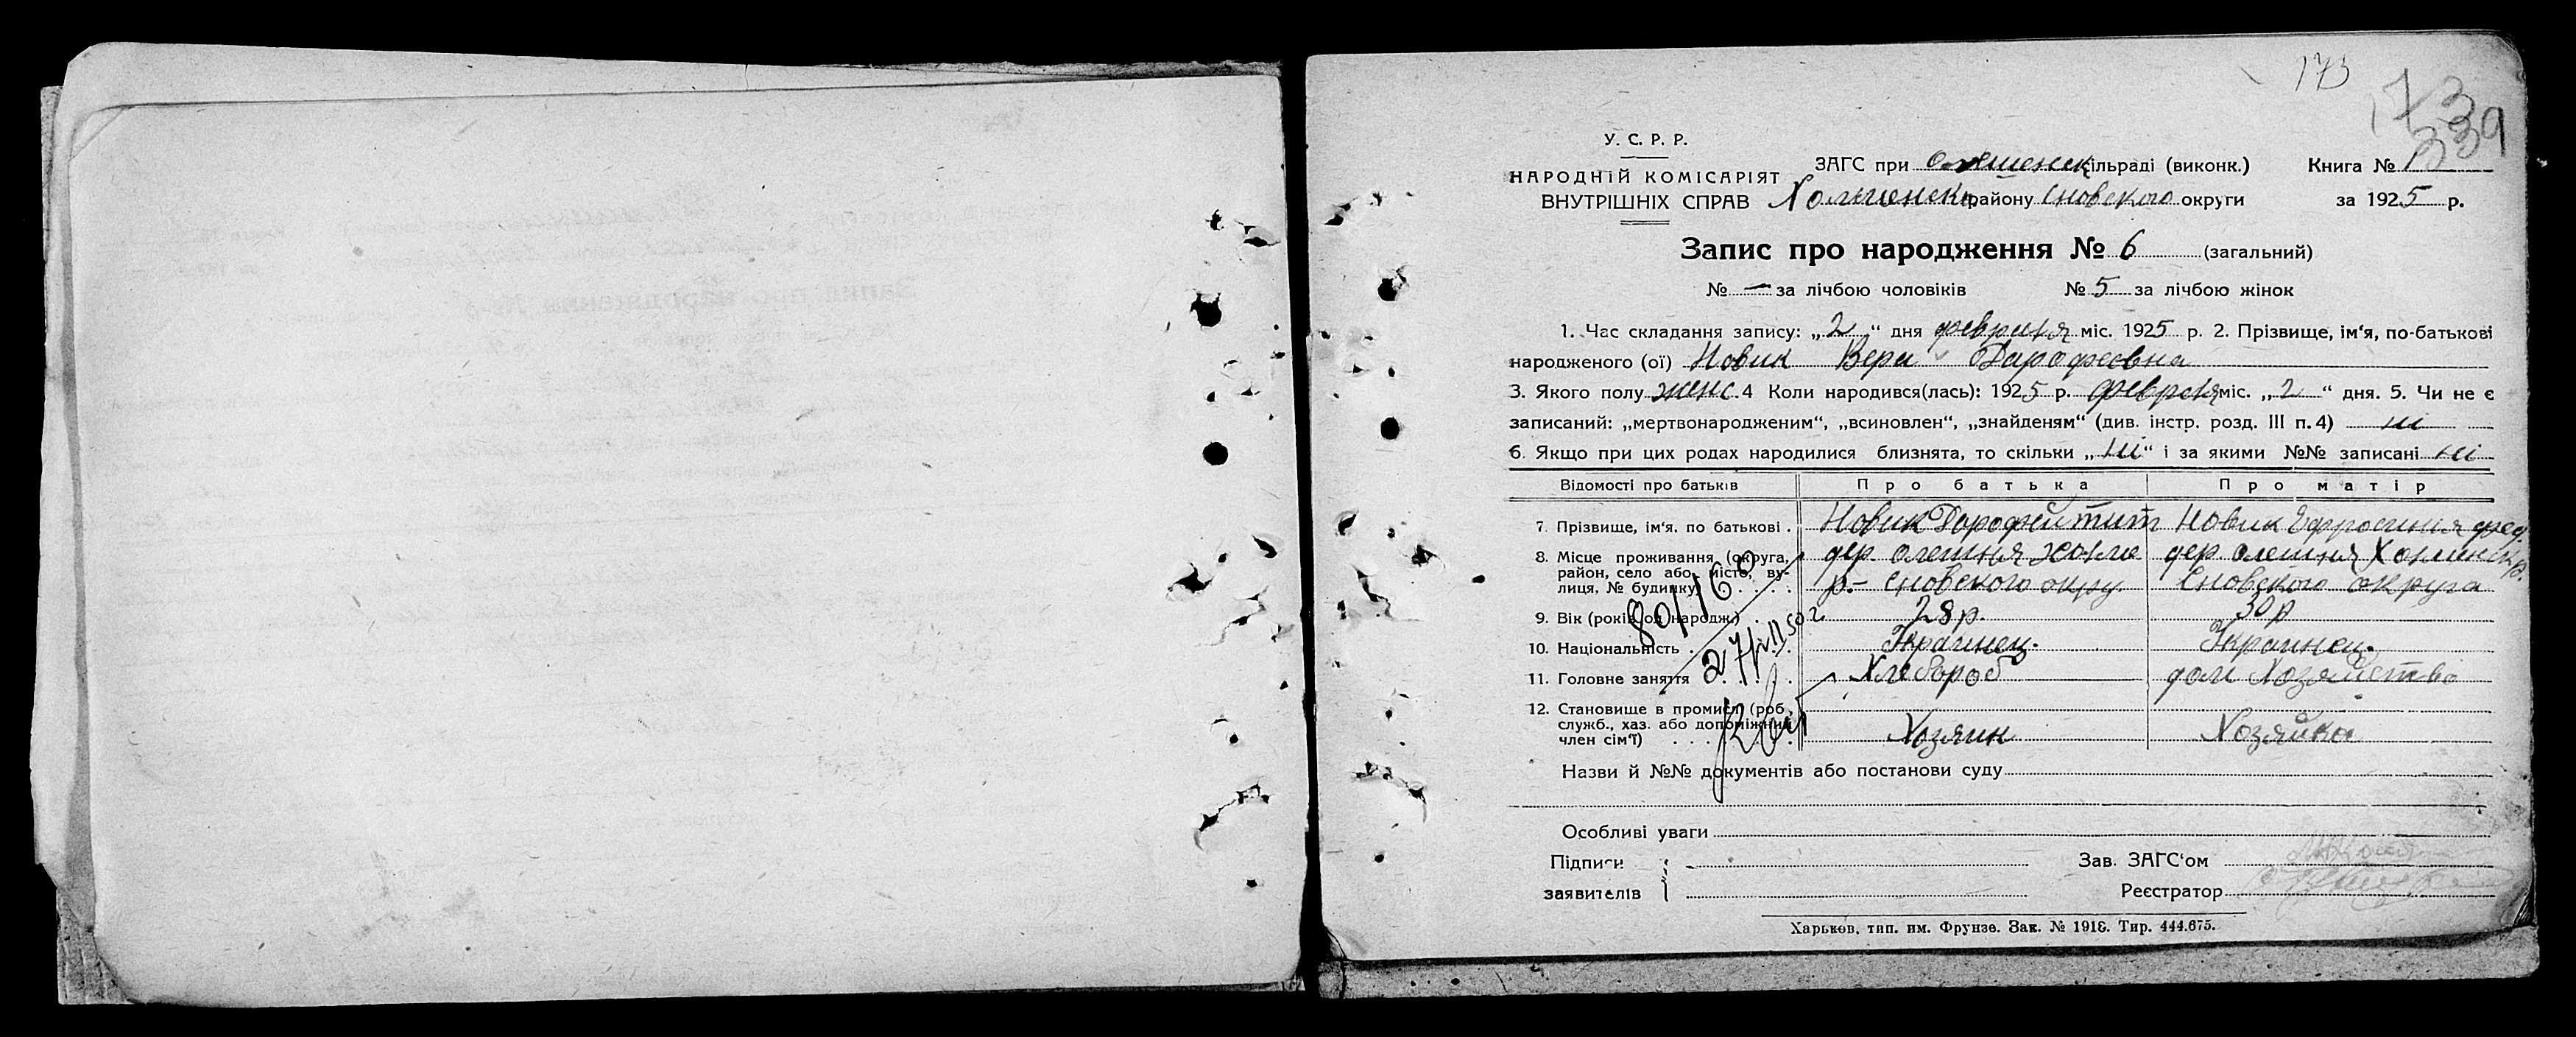 173
173
339
У. С. Р. Р.
НАРОДНІЙ КОМІСАРІЯТ
ВНУТРІШНІХ СПРАВ
ЗАГС при Олешенск сільраді (виконк.) Книга № 1
Холменско району Сновского округи за 1925 р.
Запис про народження № 6 (загальний)
№ — за лічбою чоловіків № 5 за лічбою жінок
1. Час складання запису: „2“ дня февраля міс. 1925 р. 2. Прізвище, ім‘я, по-батькові
народженого (ої) Новик Вера Дарофеевна
3. Якого полу женс. 4 Коли народився(лась): 1925 р. февраля міс. „2“ дня. 5. Чи не є
записаний: „мертвонародженим“, „всиновлен“, „знайденям“ (див. інстр. розд. III п. 4) ні
6. Якщо при цих родах народилися близнята, то скільки „ні“ і за якими №№ записані ні
Відомості про батьків Про батька Про матір
7. Прізвище, ім‘я, по батькові . Новик Дорофей тит Новик Ефросиния фед.
8. Місце проживання (округа, район, село або місто, вулиця, № будинку) дер. олешня холме р- Сновского окру. дер. олешня Холменск р. Сновского округа
9. Вік (років од народж.) 28 р. 30 р
10. Національність Украинец. Украинец.
11. Головне заняття Хлебороб дом Хозяйство
12. Становище в промислі (роб., служб., хаз. або допоміжний член сім‘ї) Хозяин Хозяйка
80/160
Назви й №№ документів або постанови суду
Особливі уваги
Підписи заявителів
Зав. ЗАГС‘ом
Реєстратор
Харьков, тип. им. Фрунзе. Зак. № 1918. Тир. 444.675.